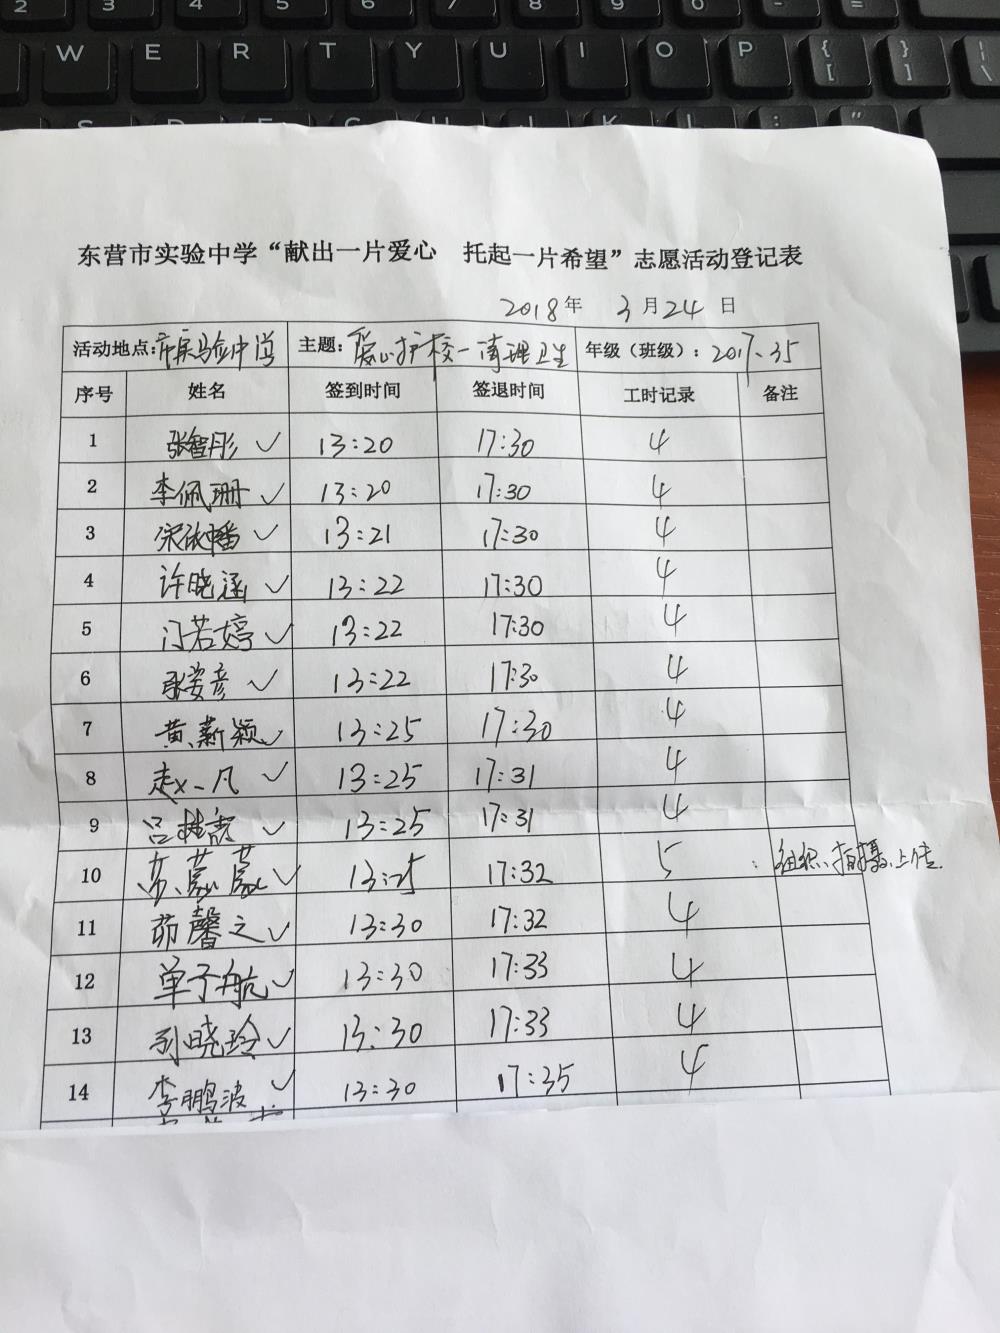 2 3 4 5 6 7 8 9 0 - =
W E R T Y U I O P { [ } ] | \
S D F G H J K L : ; " '
东营市实验中学“献出一片爱心 托起一片希望”志愿活动登记表
2018年 3月24日
活动地点:市实验中学 主题:爱心护校一清理卫生 年级（班级）:2017.35
序号 姓名 签到时间 签退时间 工时记录 备注
1 张智彤 ✓ 13:20 17:30 4
2 李佩珊 ✓ 13:20 17:30 4
3 宋依 ✓ 13:21 17:30 4
4 许晓涵 ✓ 13:22 17:30 4
5 门若婷 ✓ 13:22 17:30 4
6 张姿彦 ✓ 13:22 17:30 4
7 黄薪颖 ✓ 13:25 17:30 4
8 赵一凡 ✓ 13:25 17:31 4
9 吕 ✓ 13:25 17:31 4
10 苏蒙蒙 ✓ 13:25 17:32 5 :组织、拍摄、上传.
11 茹馨之 ✓ 13:30 17:32 4
12 单子航 ✓ 13:30 17:33 4
13 刘晓玲 ✓ 13:30 17:33 4
14 李鹏波 ✓ 13:30 17:35 4